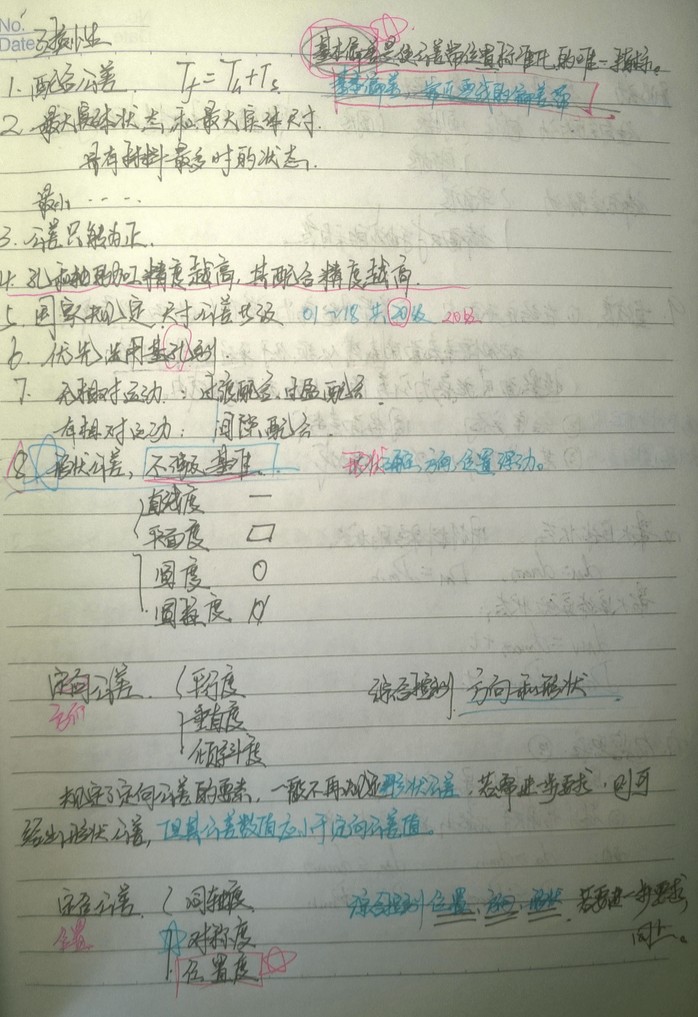 No.
Date
互换性
基本偏差是使公差带位置标准化的唯一指标。
1. 配合公差. Tf = Th + Ts
基本偏差，靠近零线的偏差
2. 最大实体状态和最大实体尺寸.
具有材料最多时的状态.
最小 ……
3. 公差只能为正.
4. 孔和轴的加工精度越高, 其配合精度越高.
5. 国家规定, 尺寸公差共设 01~18 共20级 20级
6. 优先选用基孔制.
7. 无相对运动: 过渡配合、过盈配合.
有相对运动: 间隙配合.
8. 形状公差, 不涉及基准. 形状 方向 位置 浮动。
直线度 —
平面度 ▱
圆度 ○
圆柱度 ⌭
定向公差. 平行度 综合控制 方向和形状
方向 垂直度
倾斜度
规定了定向公差的要素, 一般不再规定形状公差, 若需进一步要求, 则可
给出形状公差, 但其公差数值应小于定向公差值。
定位公差. 同轴度 综合控制 位置、方向、形状. 若要进一步要求,
位置 对称度 同上。
位置度